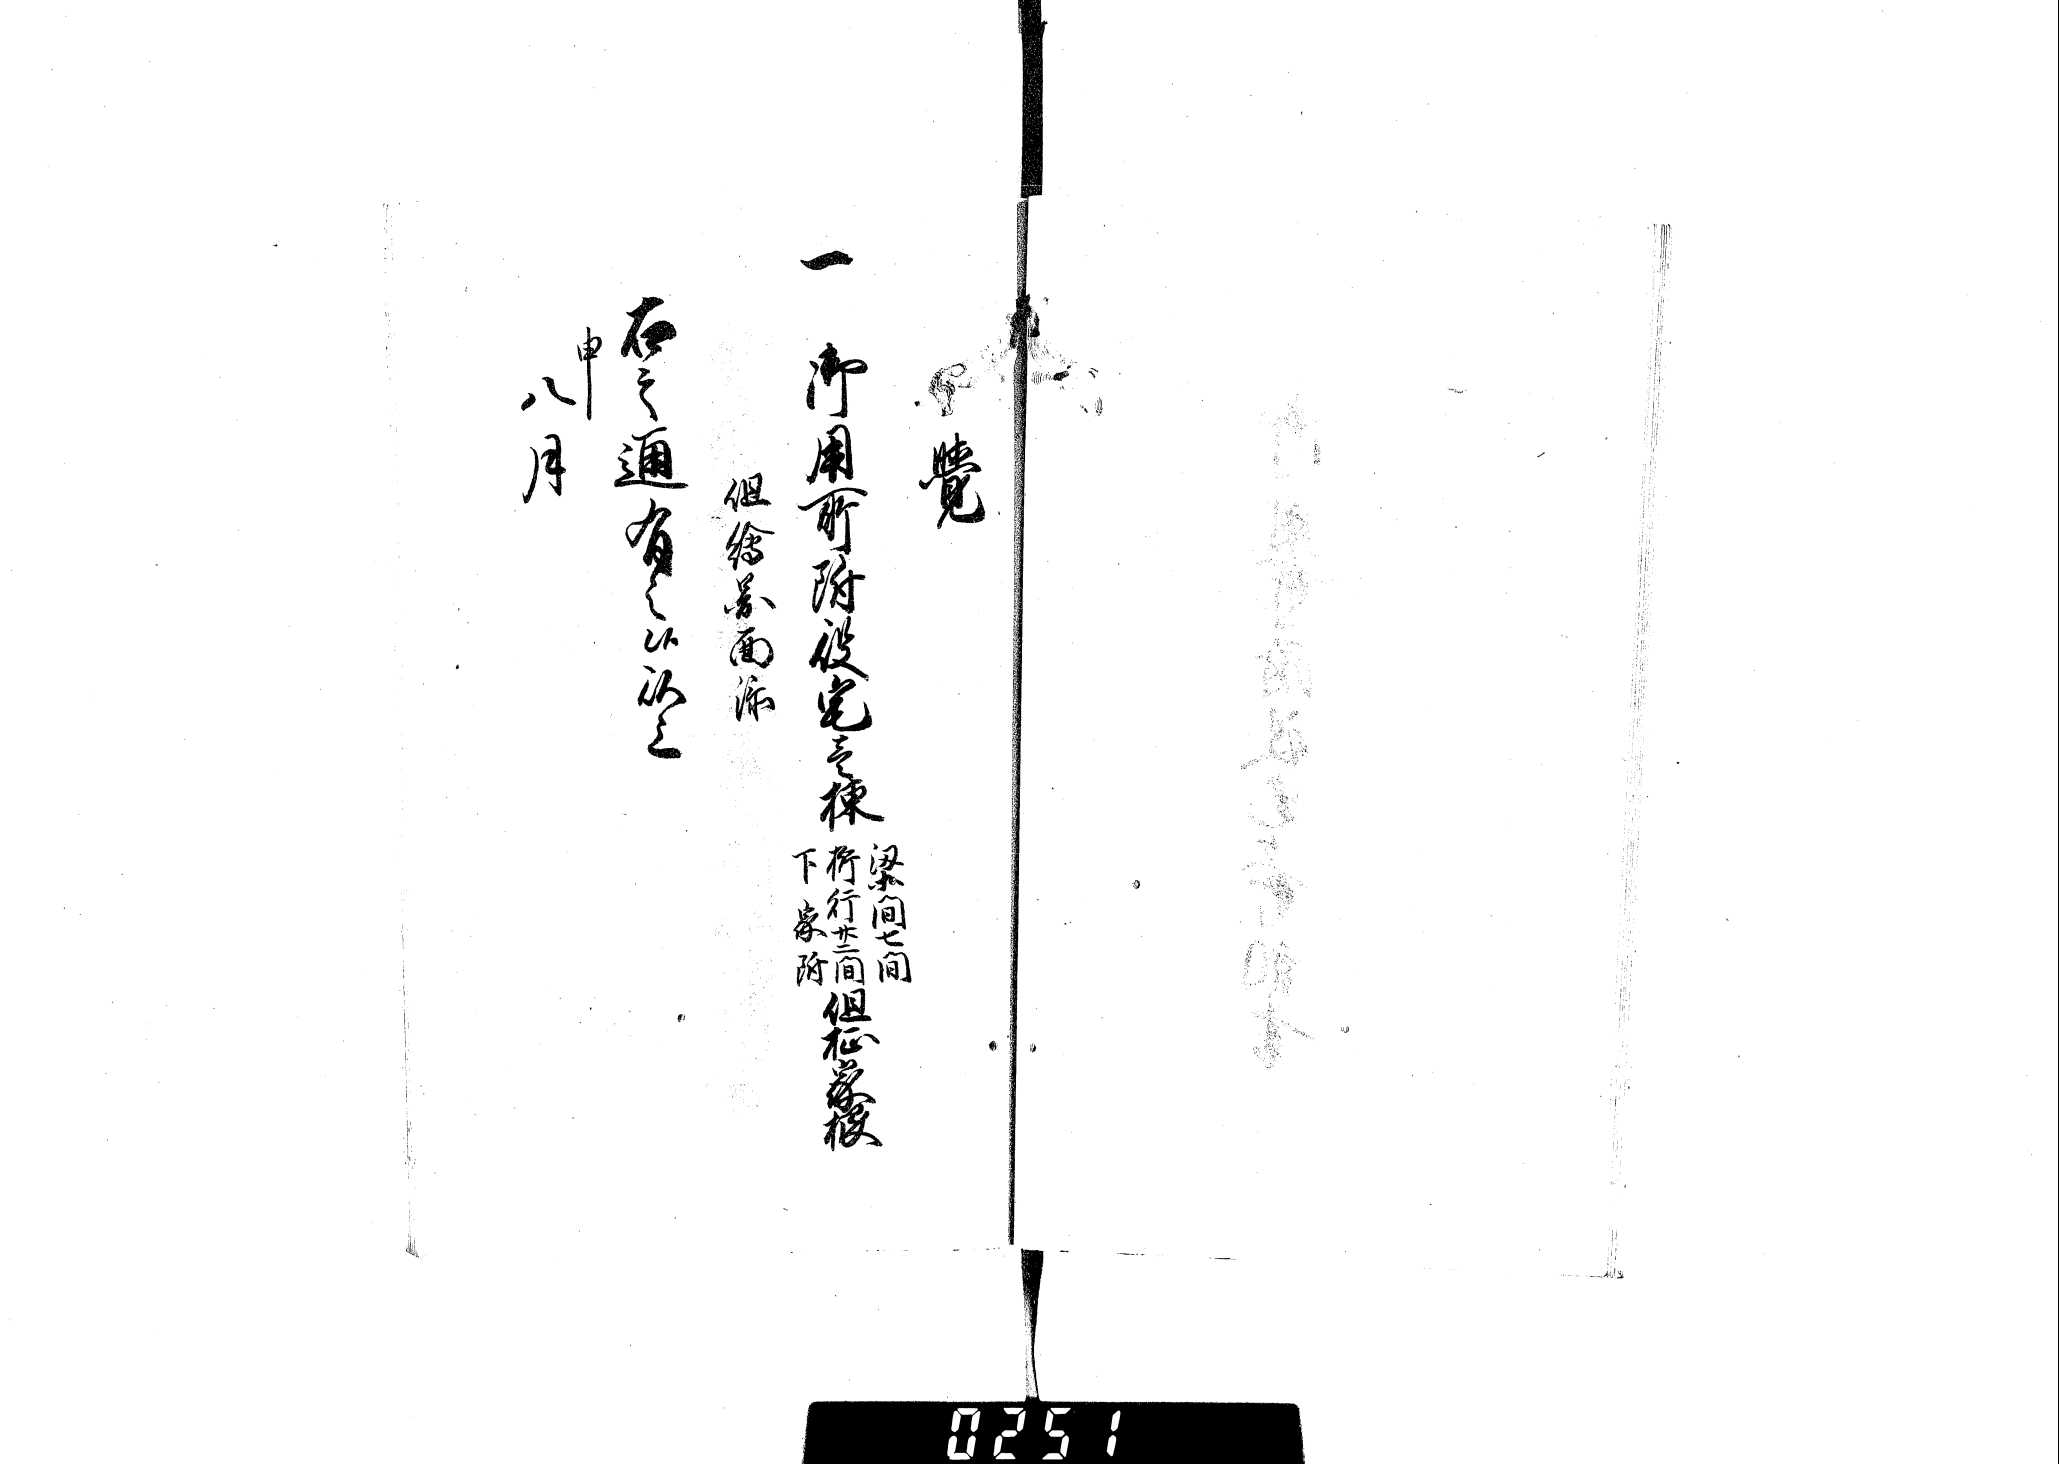 覺
一 御用所附役宅壱棟 梁間七間
桁行廿二間
下家附
但柾家根
但繪圖面添
右之通有之候以上
申
八月
0251